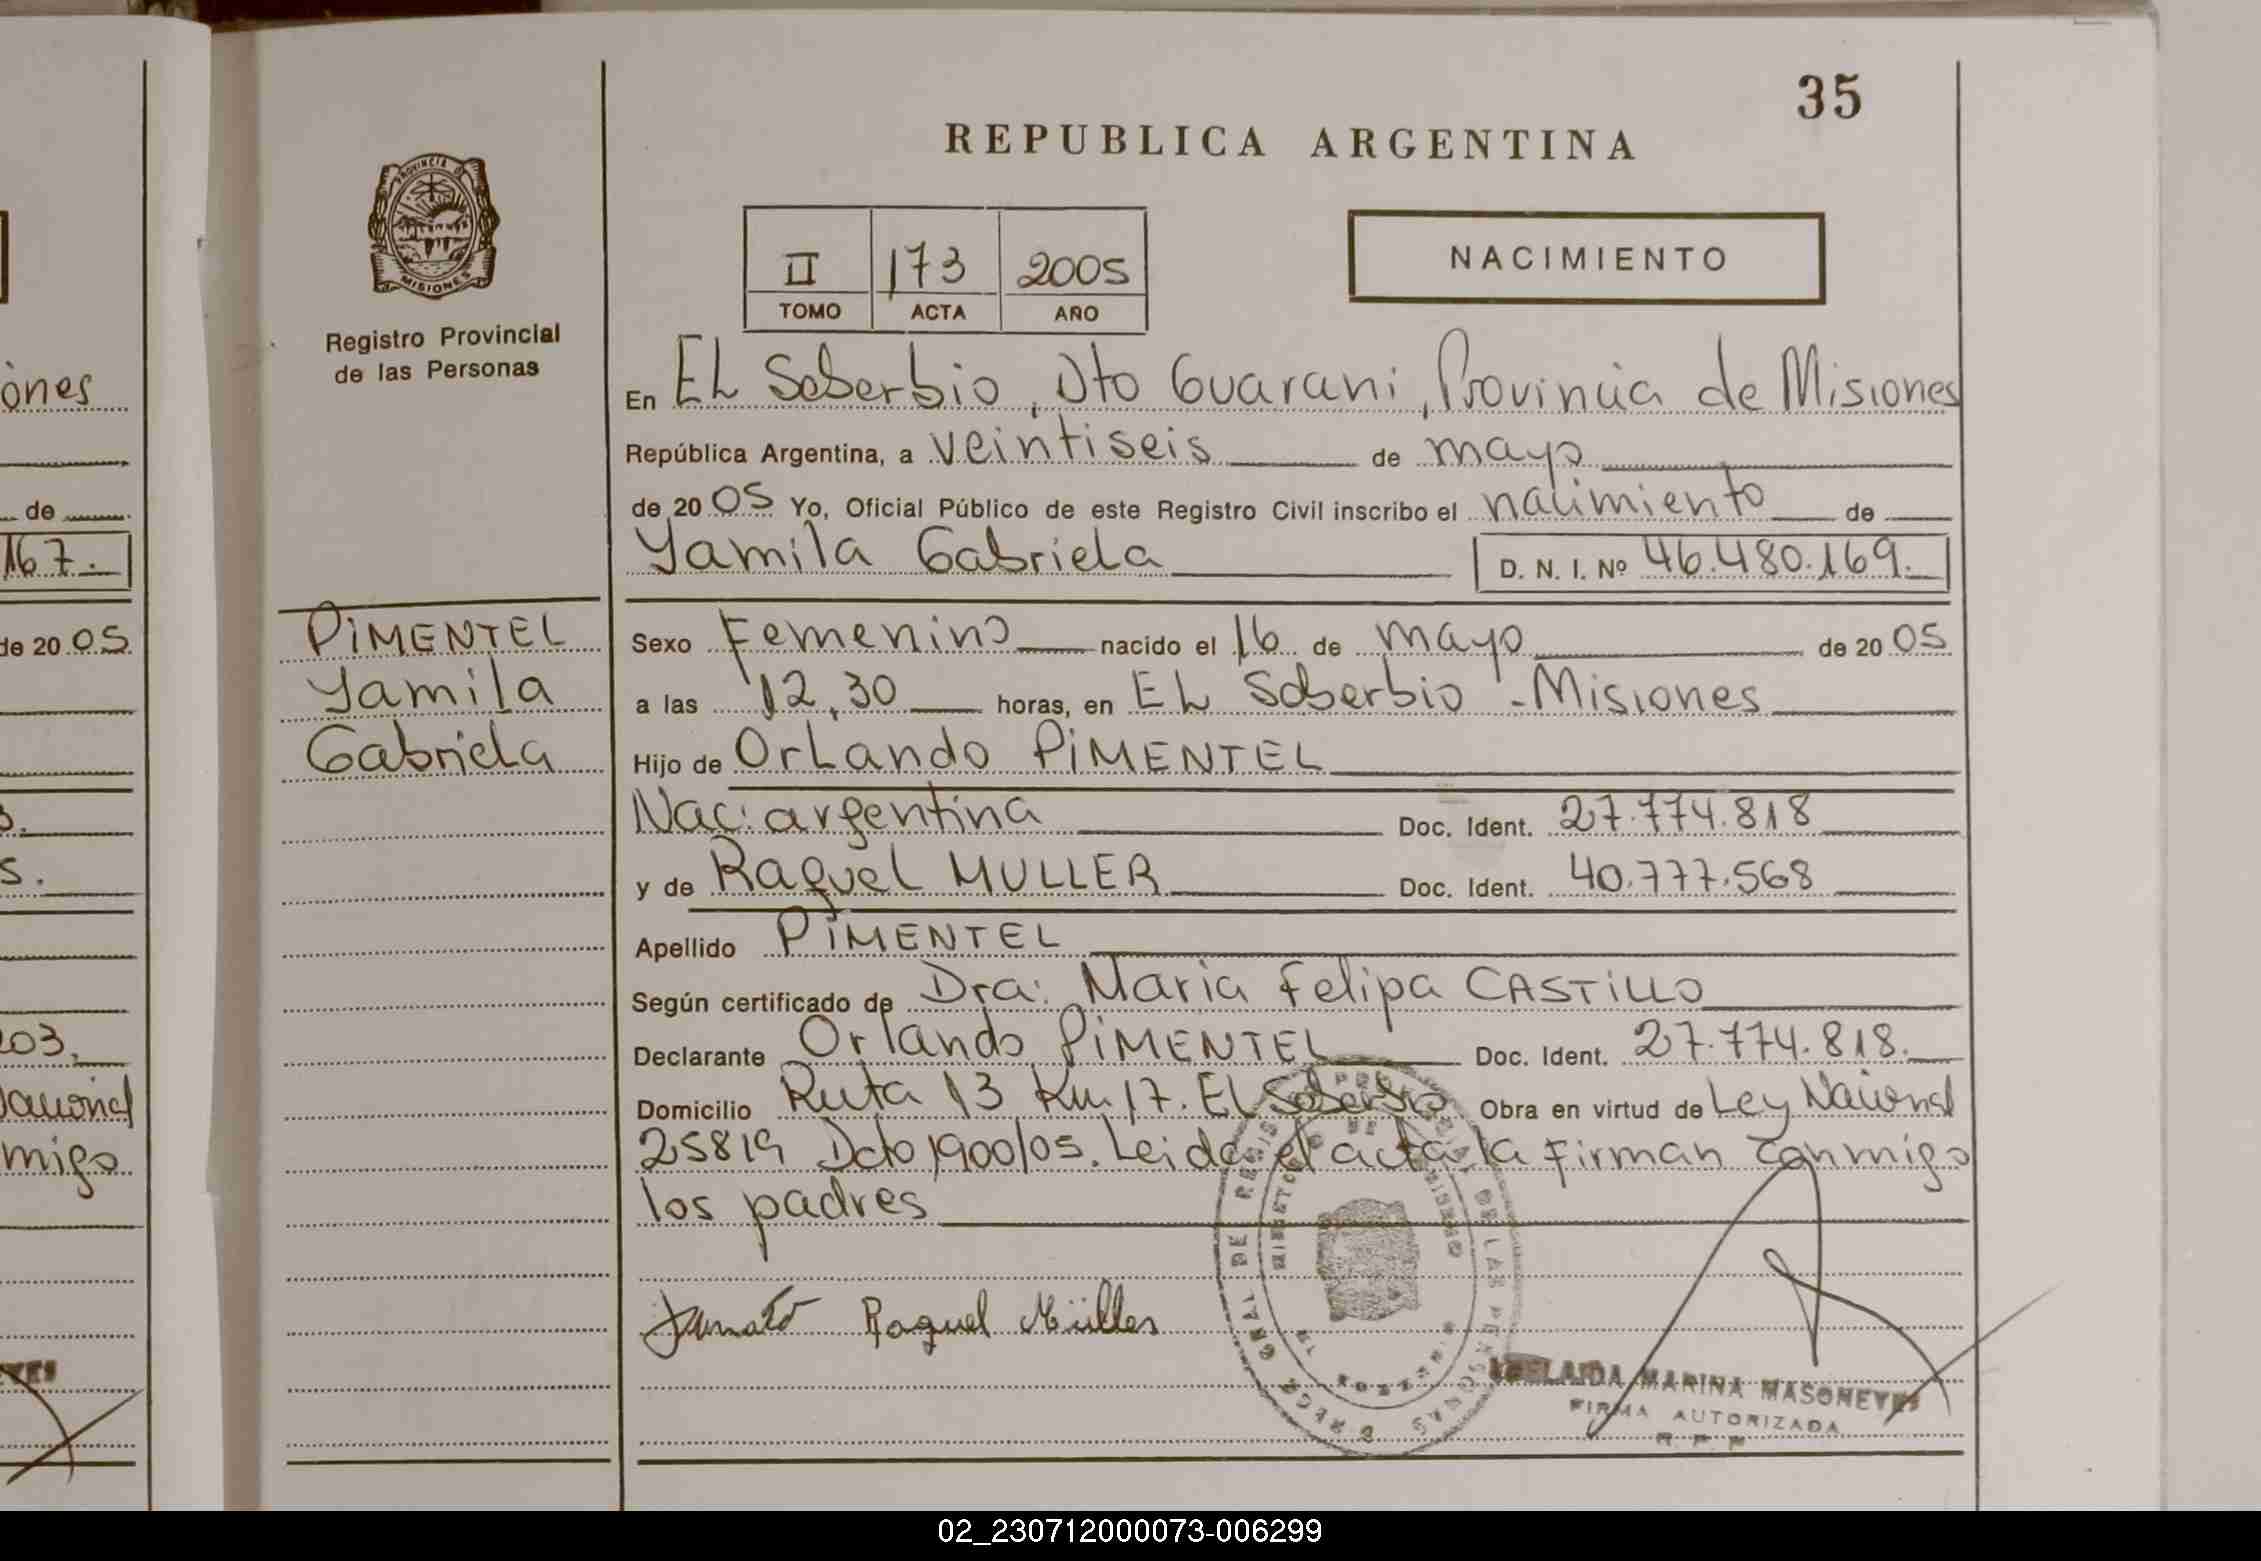 35
REPUBLICA ARGENTINA
PROVINCIA DE
MISIONES
Registro Provincial
de las Personas
II 173 2005
TOMO ACTA AÑO
NACIMIENTO
En EL Soberbio, Dto Guarani, Provincia de Misiones
República Argentina, a veintiseis de mayo
de 20 05 Yo, Oficial Público de este Registro Civil inscribo el nacimiento de
Yamila Gabriela D. N. I. Nº 46.480.169.
PiMENTEL
Yamila
Gabriela
Sexo Femenino nacido el 16 de mayo de 20 05
a las 12,30 horas, en EL Soberbio - Misiones
Hijo de Orlando PiMENTEL
Nac: argentina Doc. Ident. 27.774.818
y de Raquel MULLER Doc. Ident. 40.777.568
Apellido PiMENTEL
Según certificado de Dra: Maria Felipa CASTiLLO
Declarante Orlando PiMENTEL Doc. Ident. 27.774.818.
Domicilio Ruta 13 Km 17. EL Soberbio Obra en virtud de Ley Nacional
25819 Dcto 1900/05. Leida el acta la firman conmigo
los padres
Raquel Müller
MARINA MASONEYES
FIRMA AUTORIZADA
R. P. P.
ones
de
167.
de 20 05.
203.
Nacional
migo
02_230712000073-006299